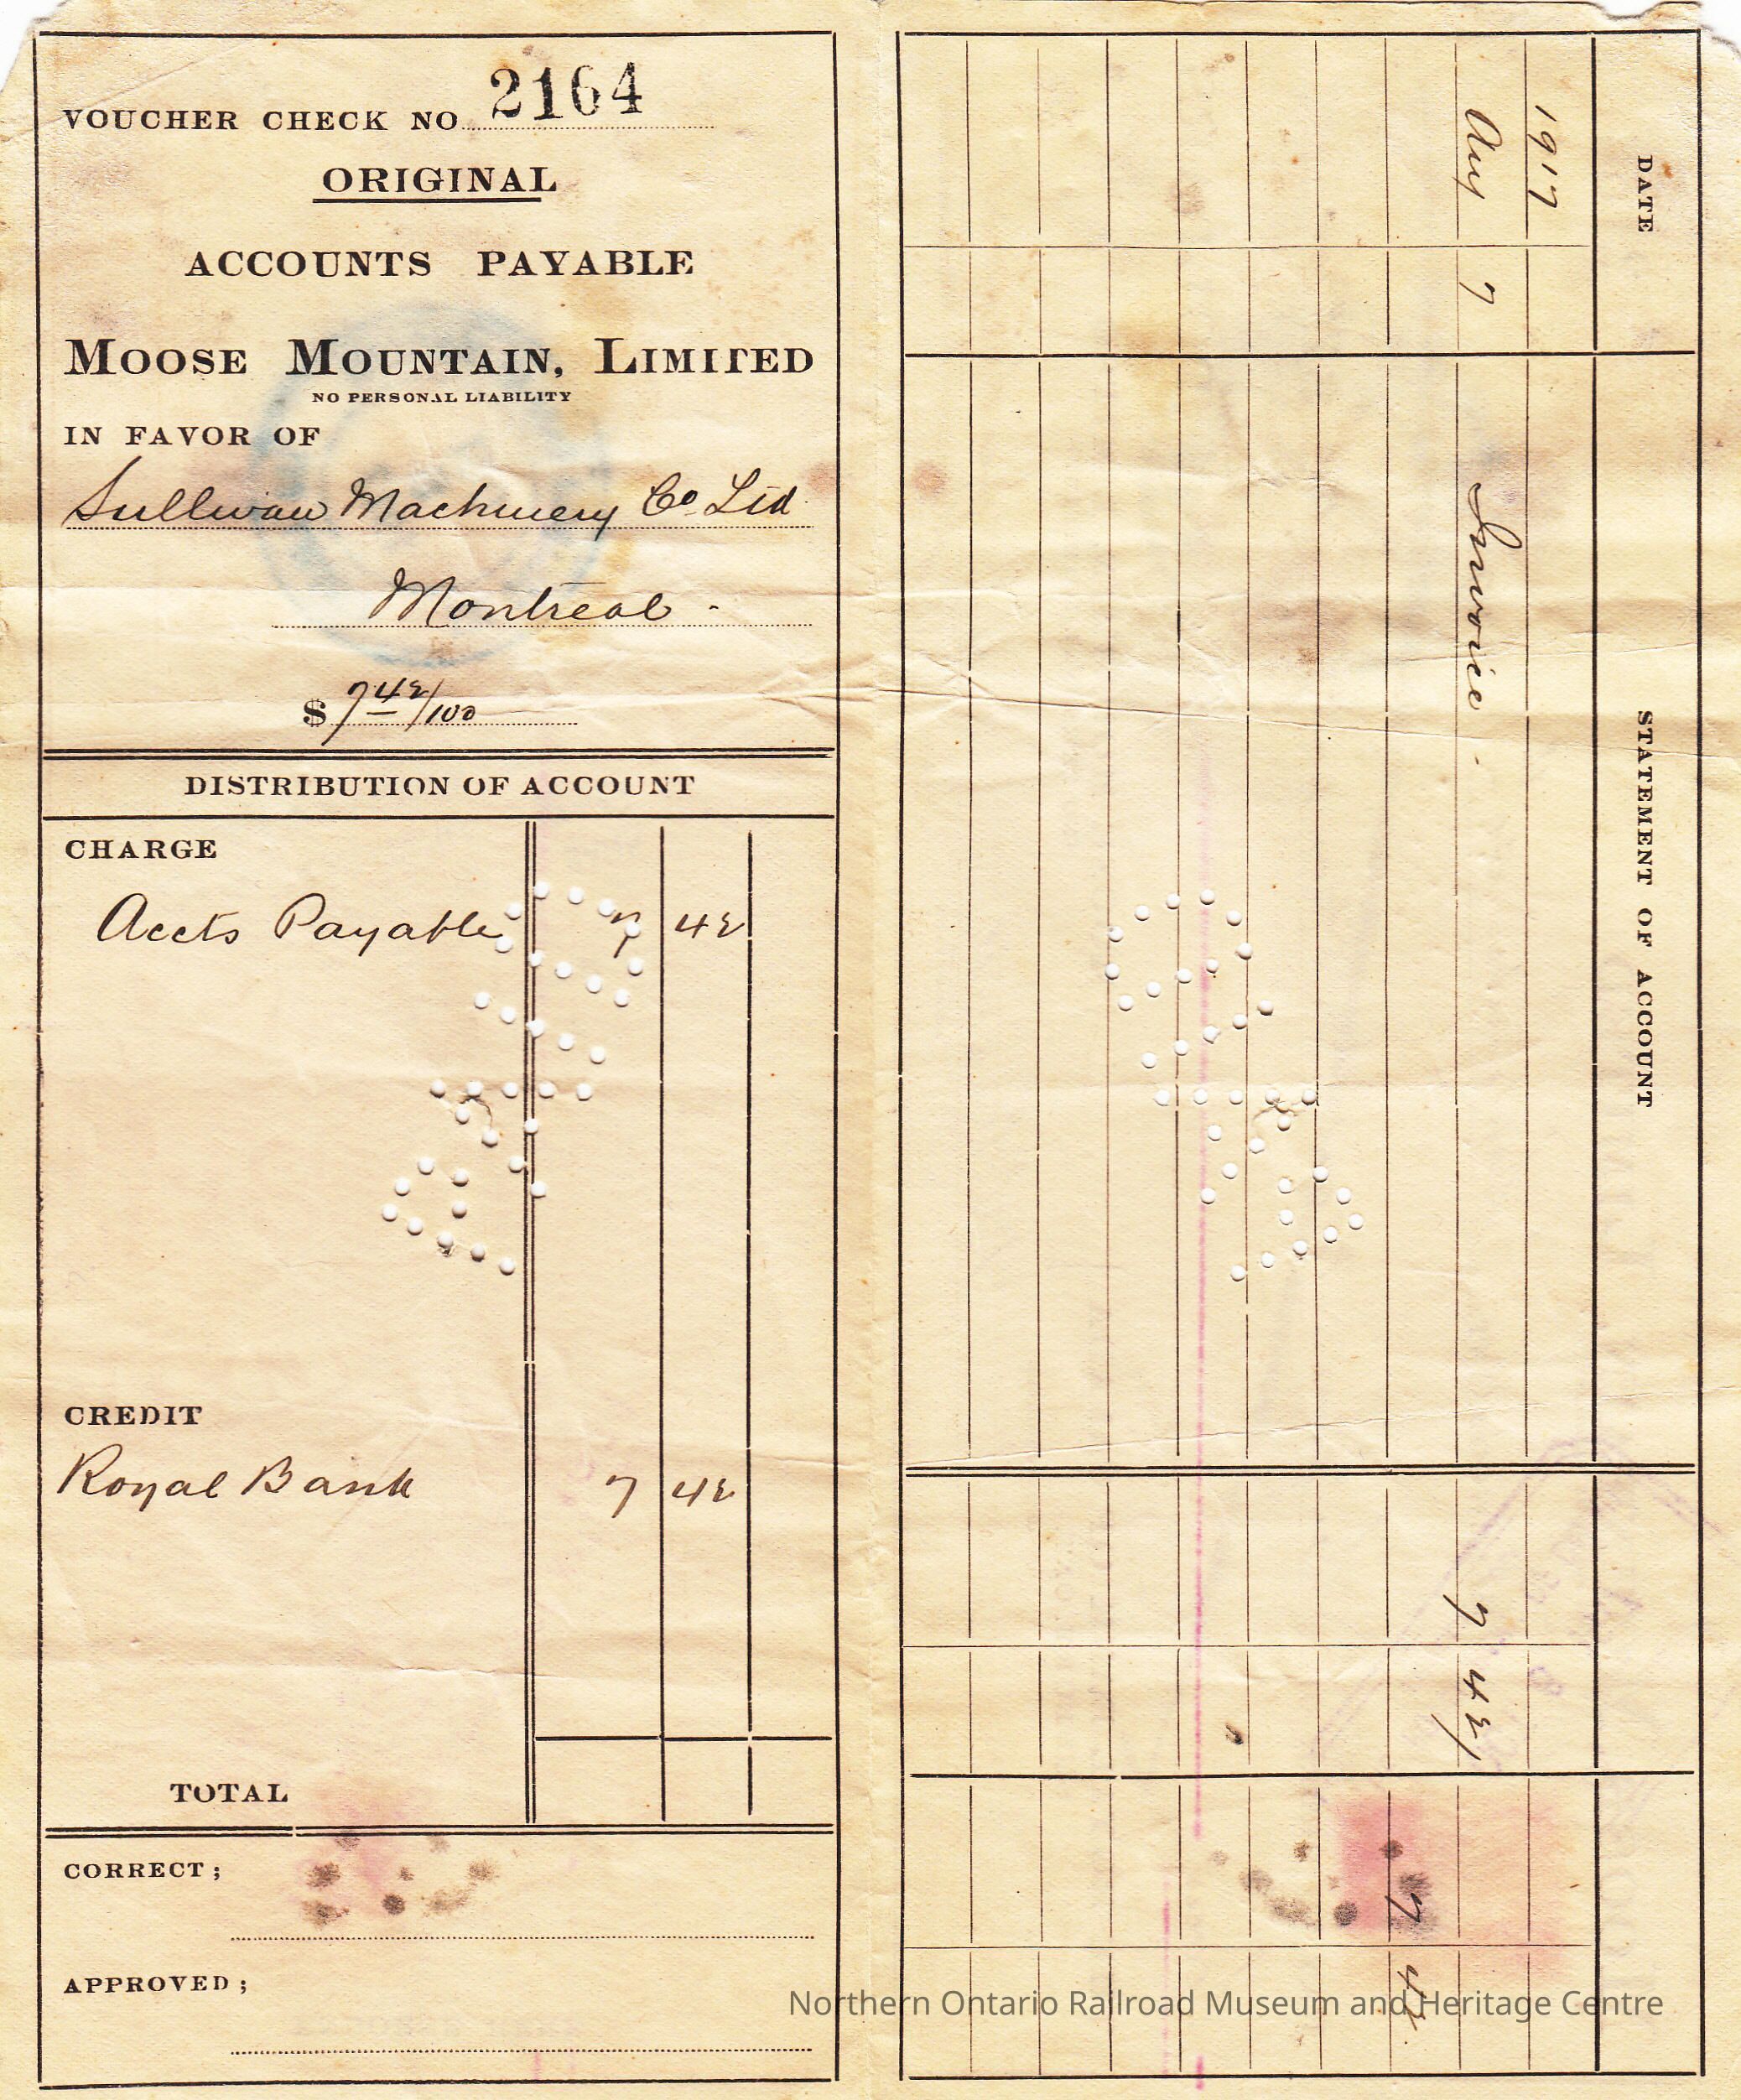 VOUCHER CHECK NO 2164
ORIGINAL
ACCOUNTS PAYABLE
MOOSE MOUNTAIN, LIMITED
NO PERSONAL LIABILITY
IN FAVOR OF
Sullivan Machinery Co Ltd
Montreal -
$ 7 42/100
DISTRIBUTION OF ACCOUNT
CHARGE
Accts Payable 7 42
CREDIT
Royal Bank 7 42
TOTAL
CORRECT;
APPROVED;
DATE STATEMENT OF ACCOUNT
1917
Aug 7 Invoice - 7 42
7 42
PAID
PAID
Northern Ontario Railroad Museum and Heritage Centre